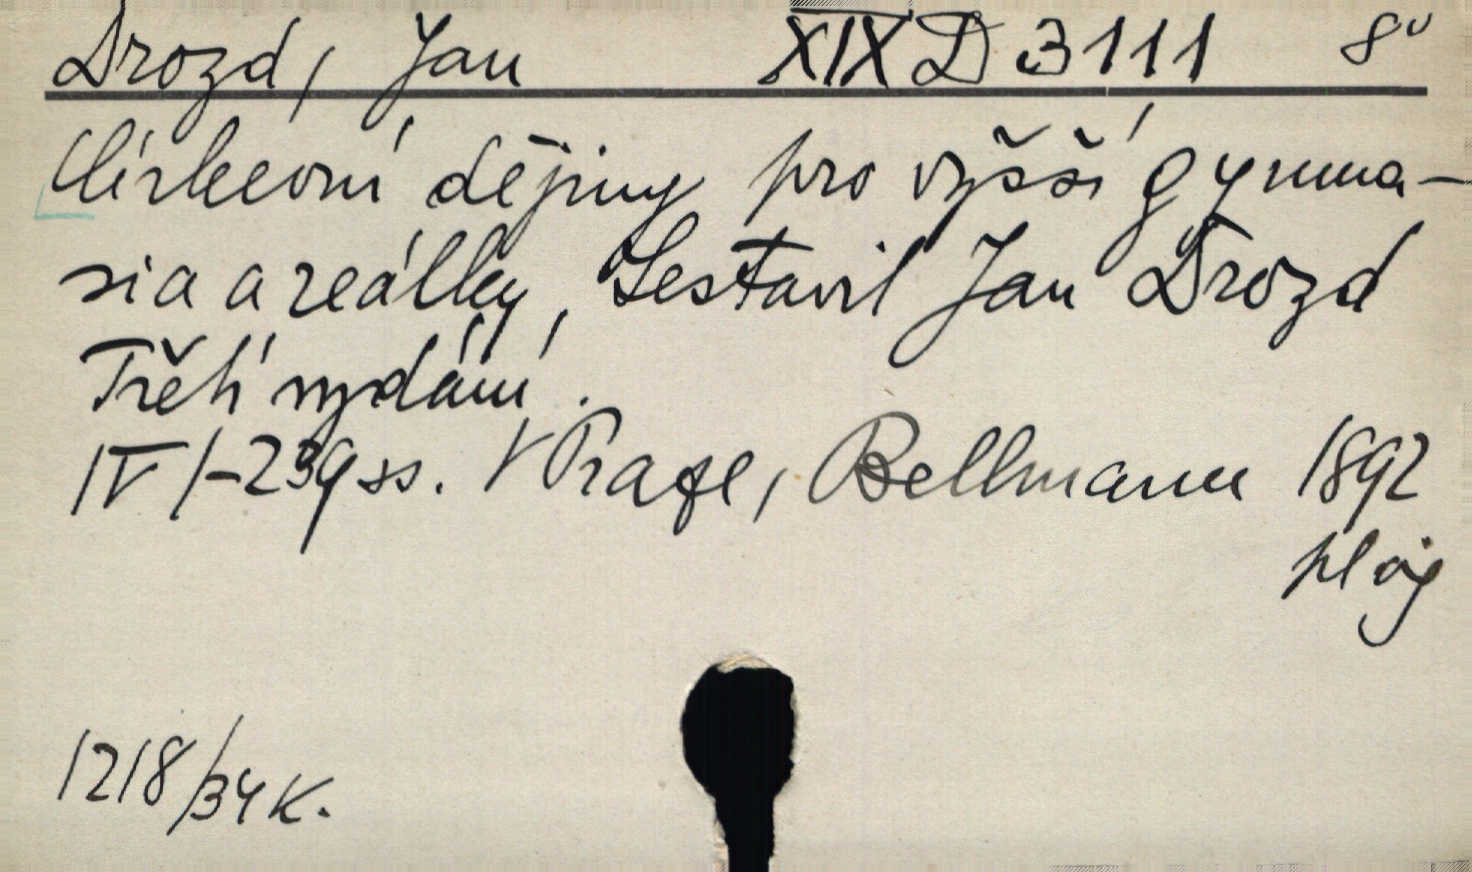 Drozd, Jan XIX D 3111 8°
Církevní dějiny pro vyšší gymna-
sia a reálky, Sestavil Jan Drozd
Třetí vydání.
IV/-239 ss. V Praze, Bellmann 1892
1218/34 K.